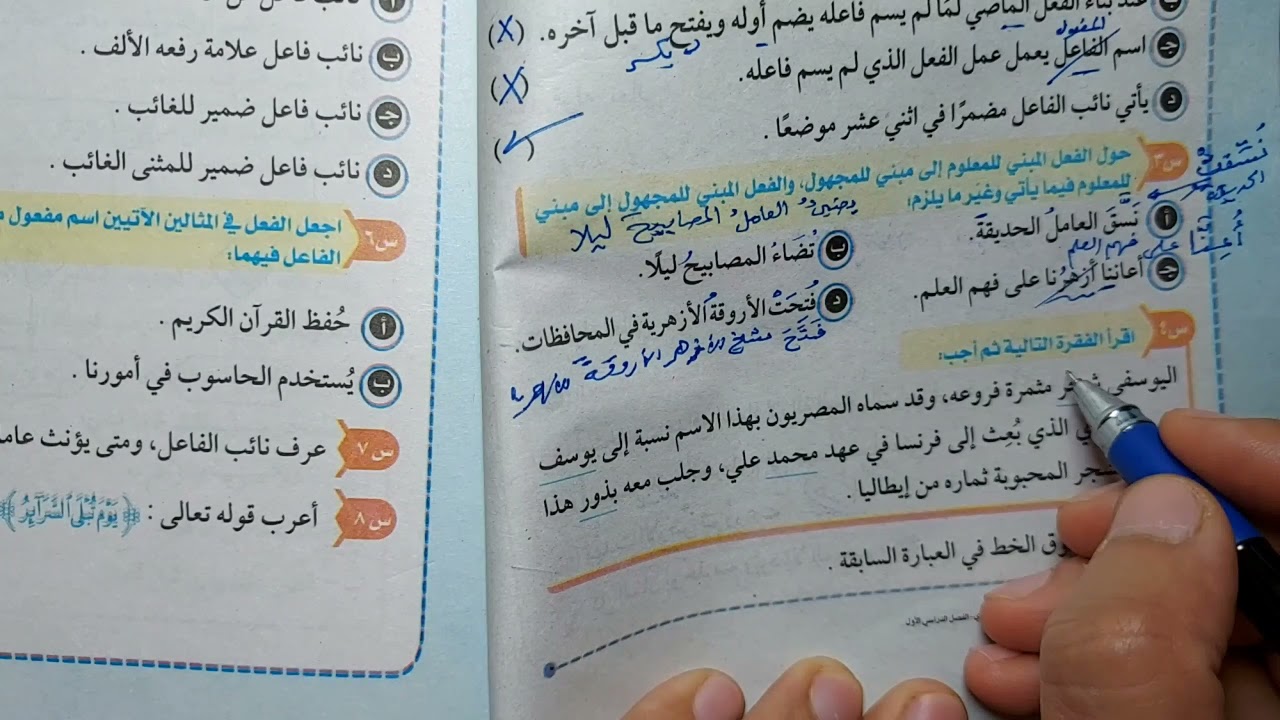 عند بناء الفعل الماضي لما لم يسم فاعله يضم أوله ويفتح ما قبل آخره. (X)
و يكسر
المفعول
جـ اسم الفاعل يعمل عمل الفعل الذي لم يسم فاعله. (X)
د يأتي نائب الفاعل مضمرًا في اثني عشر موضعًا . (✓)
س٣ حول الفعل المبني للمعلوم إلى مبني للمجهول، والفعل المبني للمجهول إلى مبني
للمعلوم فيما يأتي وغير ما يلزم:
نُسّقت
الحديقة
يضيئُ العاملُ المصابيحَ ليلا
أ نَسَّقَ العاملُ الحديقةَ.
ب تُضَاءُ المصابيحُ ليلًا.
أُعِنَّا على فهم العلم
جـ أعاننا أزهرُنا على فهم العلم.
د فُتحَتْ الأروقةُ الأزهرية في المحافظات.
فَتَحَ شيخ الأزهر الأروقةَ
س٤ اقرأ الفقرة التالية ثم أجب:
اليوسفي مثمرة فروعه، وقد سماه المصريون بهذا الاسم نسبة إلى يوسف
الذي بُعِث إلى فرنسا في عهد محمد علي، وجلب معه بذور هذا
المحبوبة ثماره من إيطاليا .
الخط في العبارة السابقة .
الفصل الدراسي الأول
ب نائب فاعل علامة رفعه الألف .
جـ نائب فاعل ضمير للغائب .
د نائب فاعل ضمير للمثنى الغائب .
س٦ اجعل الفعل في المثالين الآتيين اسم مفعول
الفاعل فيهما:
أ حُفظ القرآن الكريم .
ب يُستخدم الحاسوب في أمورنا .
س٧ عرف نائب الفاعل، ومتى يؤنث
س٨ أعرب قوله تعالى : ﴿يَوْمَ تُبْلَى السَّرَائِرُ﴾